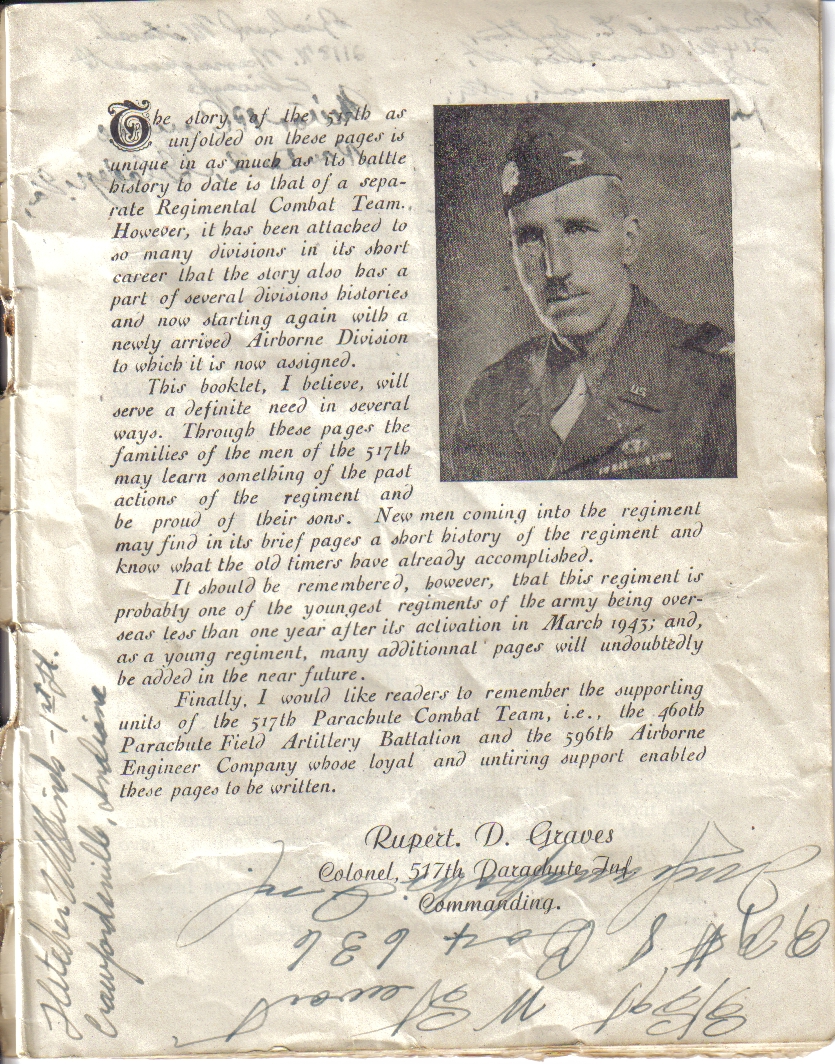 The story, of the 517th as
unfolded on these pages is
unique in as much as its battle
history to date is that of a sepa-
rate Regimental Combat Team.
However, it has been attached to
so many divisions in its short
career that the story also has a
part of several divisions histories
and now starting again with a
newly arrived Airborne Division
to which it is now assigned.
This booklet, I believe, will
serve a definite need in several
ways. Through these pages the
families of the men of the 517th
may learn something of the past
actions of the regiment and
be proud of their sons. New men coming into the regiment
may find in its brief pages a short history of the regiment and
know what the old timers have already accomplished.
It should be remembered, however, that this regiment is
probably one of the youngest regiments of the army being over-
seas less than one year after its activation in March 1943; and,
as a young regiment, many additionnal pages will undoubtedly
be added in the near future.
Finally, I would like readers to remember the supporting
units of the 517th Parachute Combat Team, i.e., the 460th
Parachute Field Artillery Battalion and the 596th Airborne
Engineer Company whose loyal and untiring support enabled
these pages to be written.
Rupert. D. Graves
Colonel, 517th Parachute Inf.
Commanding.
US
Fletcher
Crawfordsville, Indiana
W Stewart
# 8 Box 636